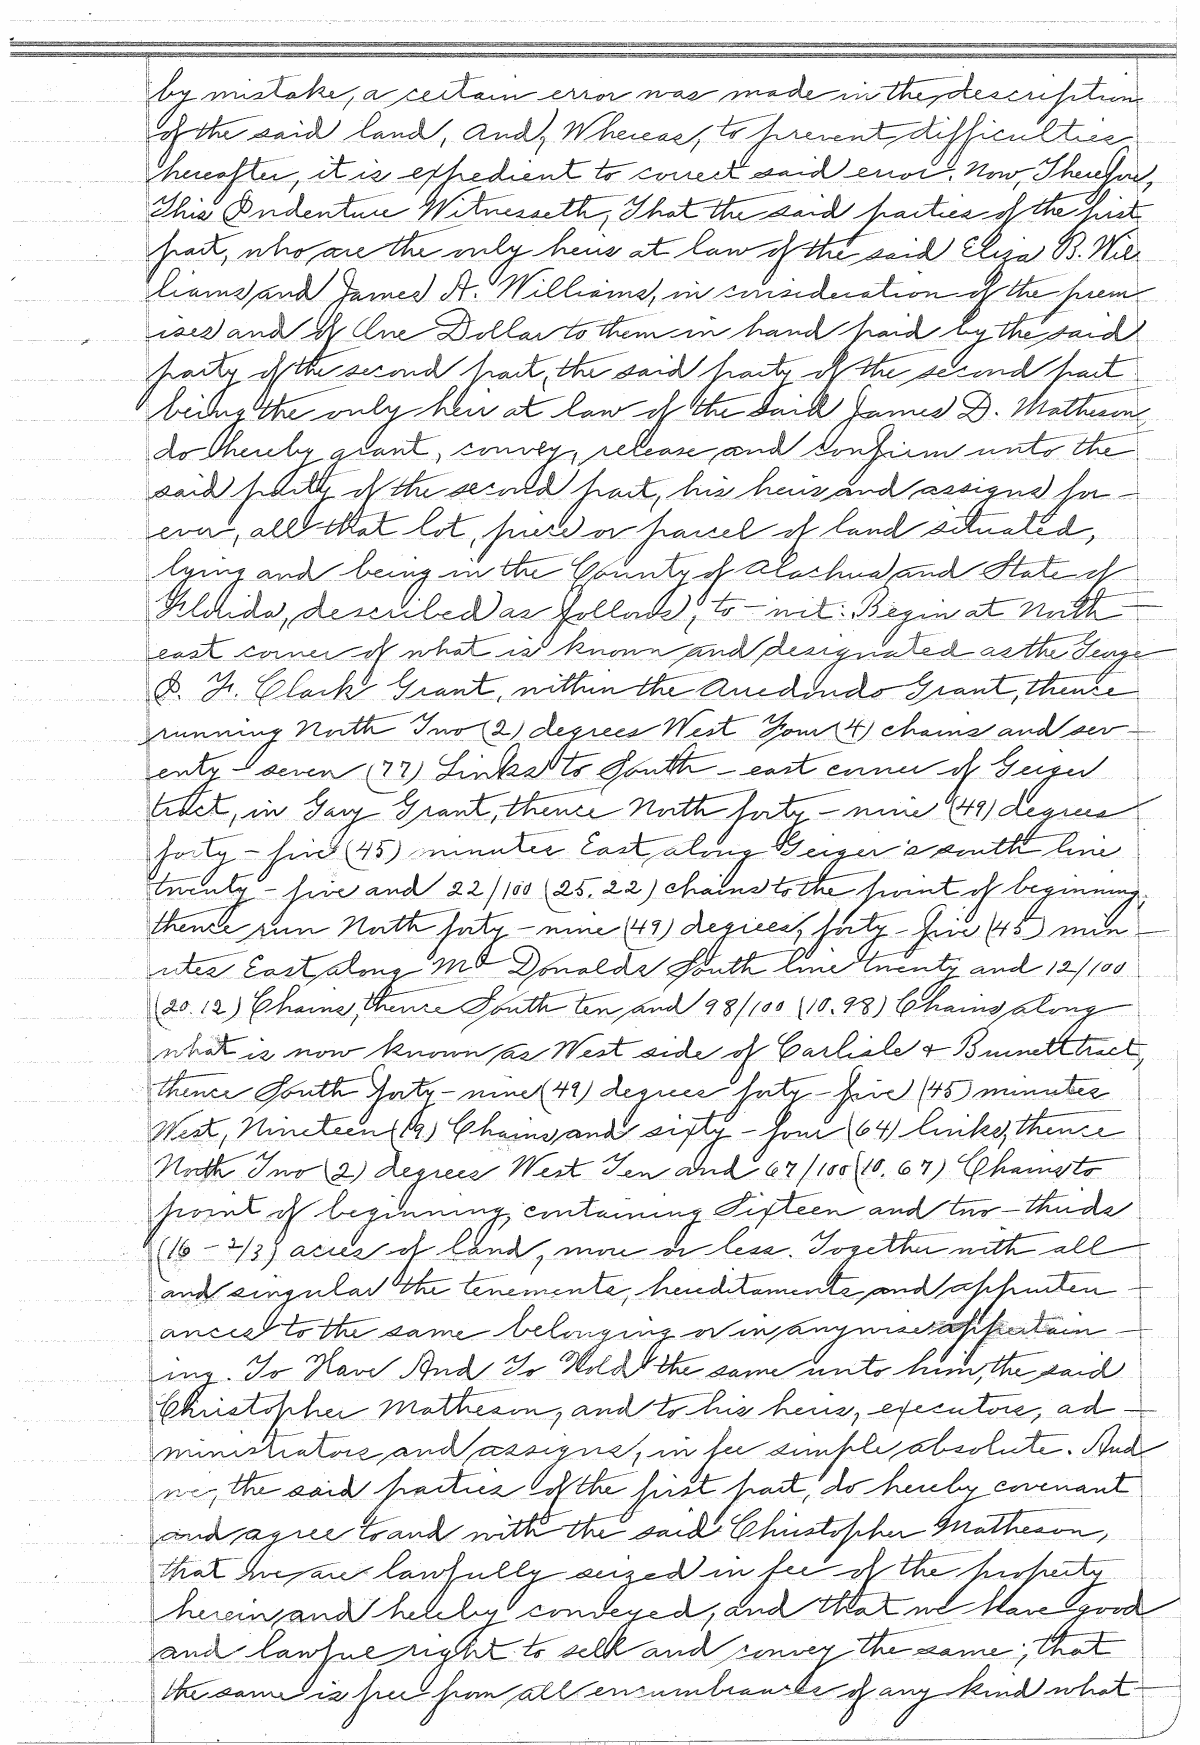 by mistake, a certain error was made in the description
of the said land, And, Whereas, to prevent difficulties
hereafter, it is expedient to correct said error. Now, Therefore,
This Indenture Witnesseth, That the said parties of the first
part, who are the only heirs at law of the said Eliza B. Wil
liams and James A. Williams, in consideration of the prem
ises and of One Dollar to them in hand paid by the said
party of the second part, the said party of the second part
being the only heir at law of the said James D. Matheson,
do hereby grant, convey, release and confirm unto the
said party of the second part, his heirs and assigns for-
ever, all that lot, piece or parcel of land situated,
lying and being in the County of Alachua and State of
Florida, described as follows, to-wit: Begin at North
east corner of what is known and designated as the George
I. F. Clark Grant, within the Arredondo Grant, thence
running North Two (2) degrees West Four (4) chains and sev-
enty-seven (77) Links to South-east corner of Geiger
tract, in Gary Grant, thence North forty-nine (49) degrees
forty-five (45) minutes East, along Geiger's south line
twenty-five and 22/100 (25.22) chains to the point of beginning,
thence run North forty-nine (49) degrees, forty-five (45) min-
utes East, along McDonalds South line twenty and 12/100
(20.12) Chains, thence South ten and 98/100 (10.98) Chains along
what is now known as West side of Carlisle & Burnett tract,
thence South forty-nine (49) degrees forty-five (45) minutes
West, Nineteen (19) Chains and sixty-four (64) links, thence
North Two (2) degrees West Ten and 67/100 (10.67) Chains to
point of beginning, containing Sixteen and two-thirds
(16-2/3) acres of land, more or less. Together with all
and singular the tenements, hereditaments and appurten-
ances to the same belonging or in anywise appertain-
ing. To Have And To Hold the same unto him, the said
Christopher Matheson, and to his heirs, executors, ad-
ministrators and assigns, in fee simple absolute. And
we, the said parties of the first part, do hereby covenant
and agree to and with the said Christopher Matheson,
that we are lawfully seized in fee of the property
herein and hereby conveyed, and that we have good
and lawful right to sell and convey the same; that
the same is free from all encumbrances of any kind what-